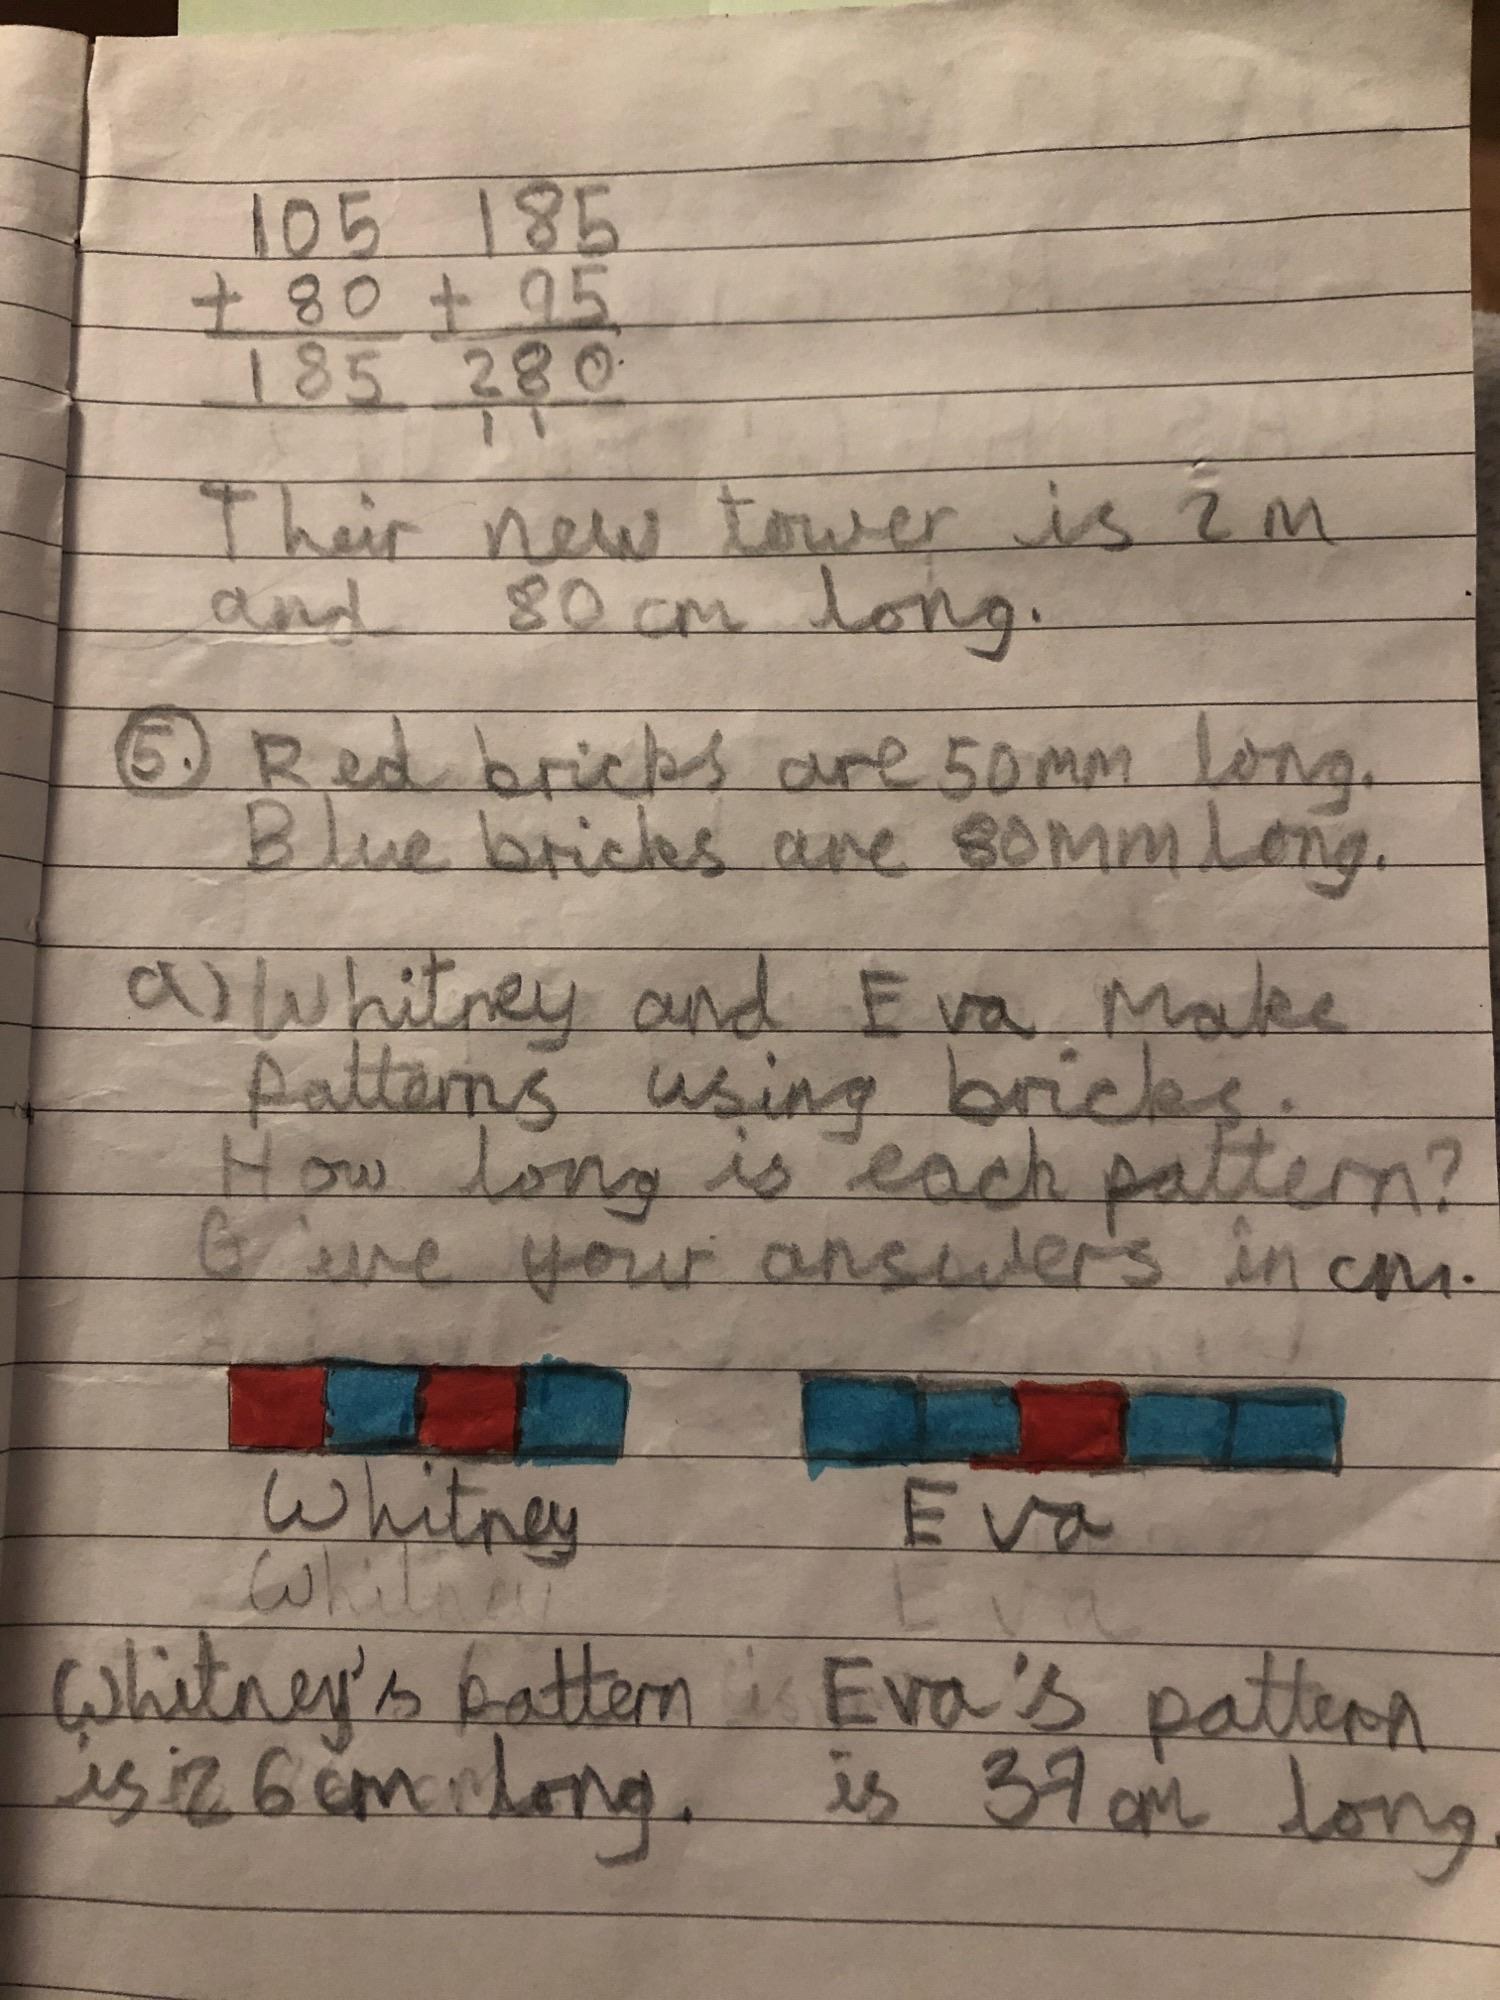 105 185
+ 80 + 95
185 280
1 1
Their new tower is 2 m
and 80 cm long.
5. Red bricks are 50mm long.
Blue bricks are 80mm long.
a) Whitney and Eva make
patterns using bricks.
How long is each pattern?
Give your answers in cm.
Whitney Eva
Whitney Eva
Whitney's pattern is Eva's pattern
is 26 cm long. is 37 cm long.